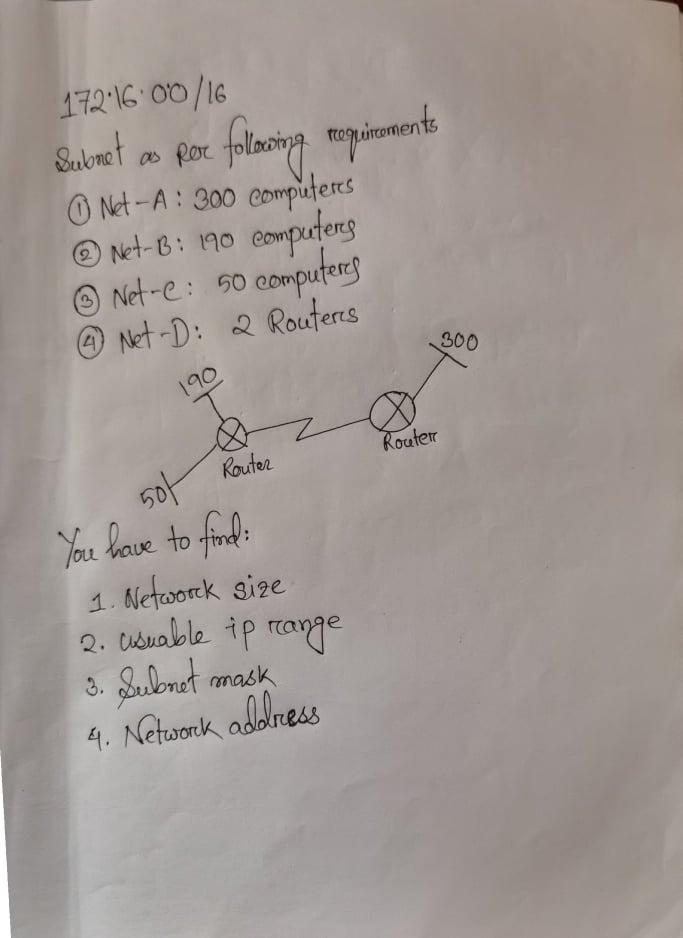 172.16.0.0/16
Subnet as per following requirements
① Net-A: 300 computers
② Net-B: 190 computers
③ Net-C: 50 computers
④ Net-D: 2 Routers
300
190
Router
Router
50
You have to find:
1. Network size
2. usuable ip range
3. Subnet mask
4. Network address